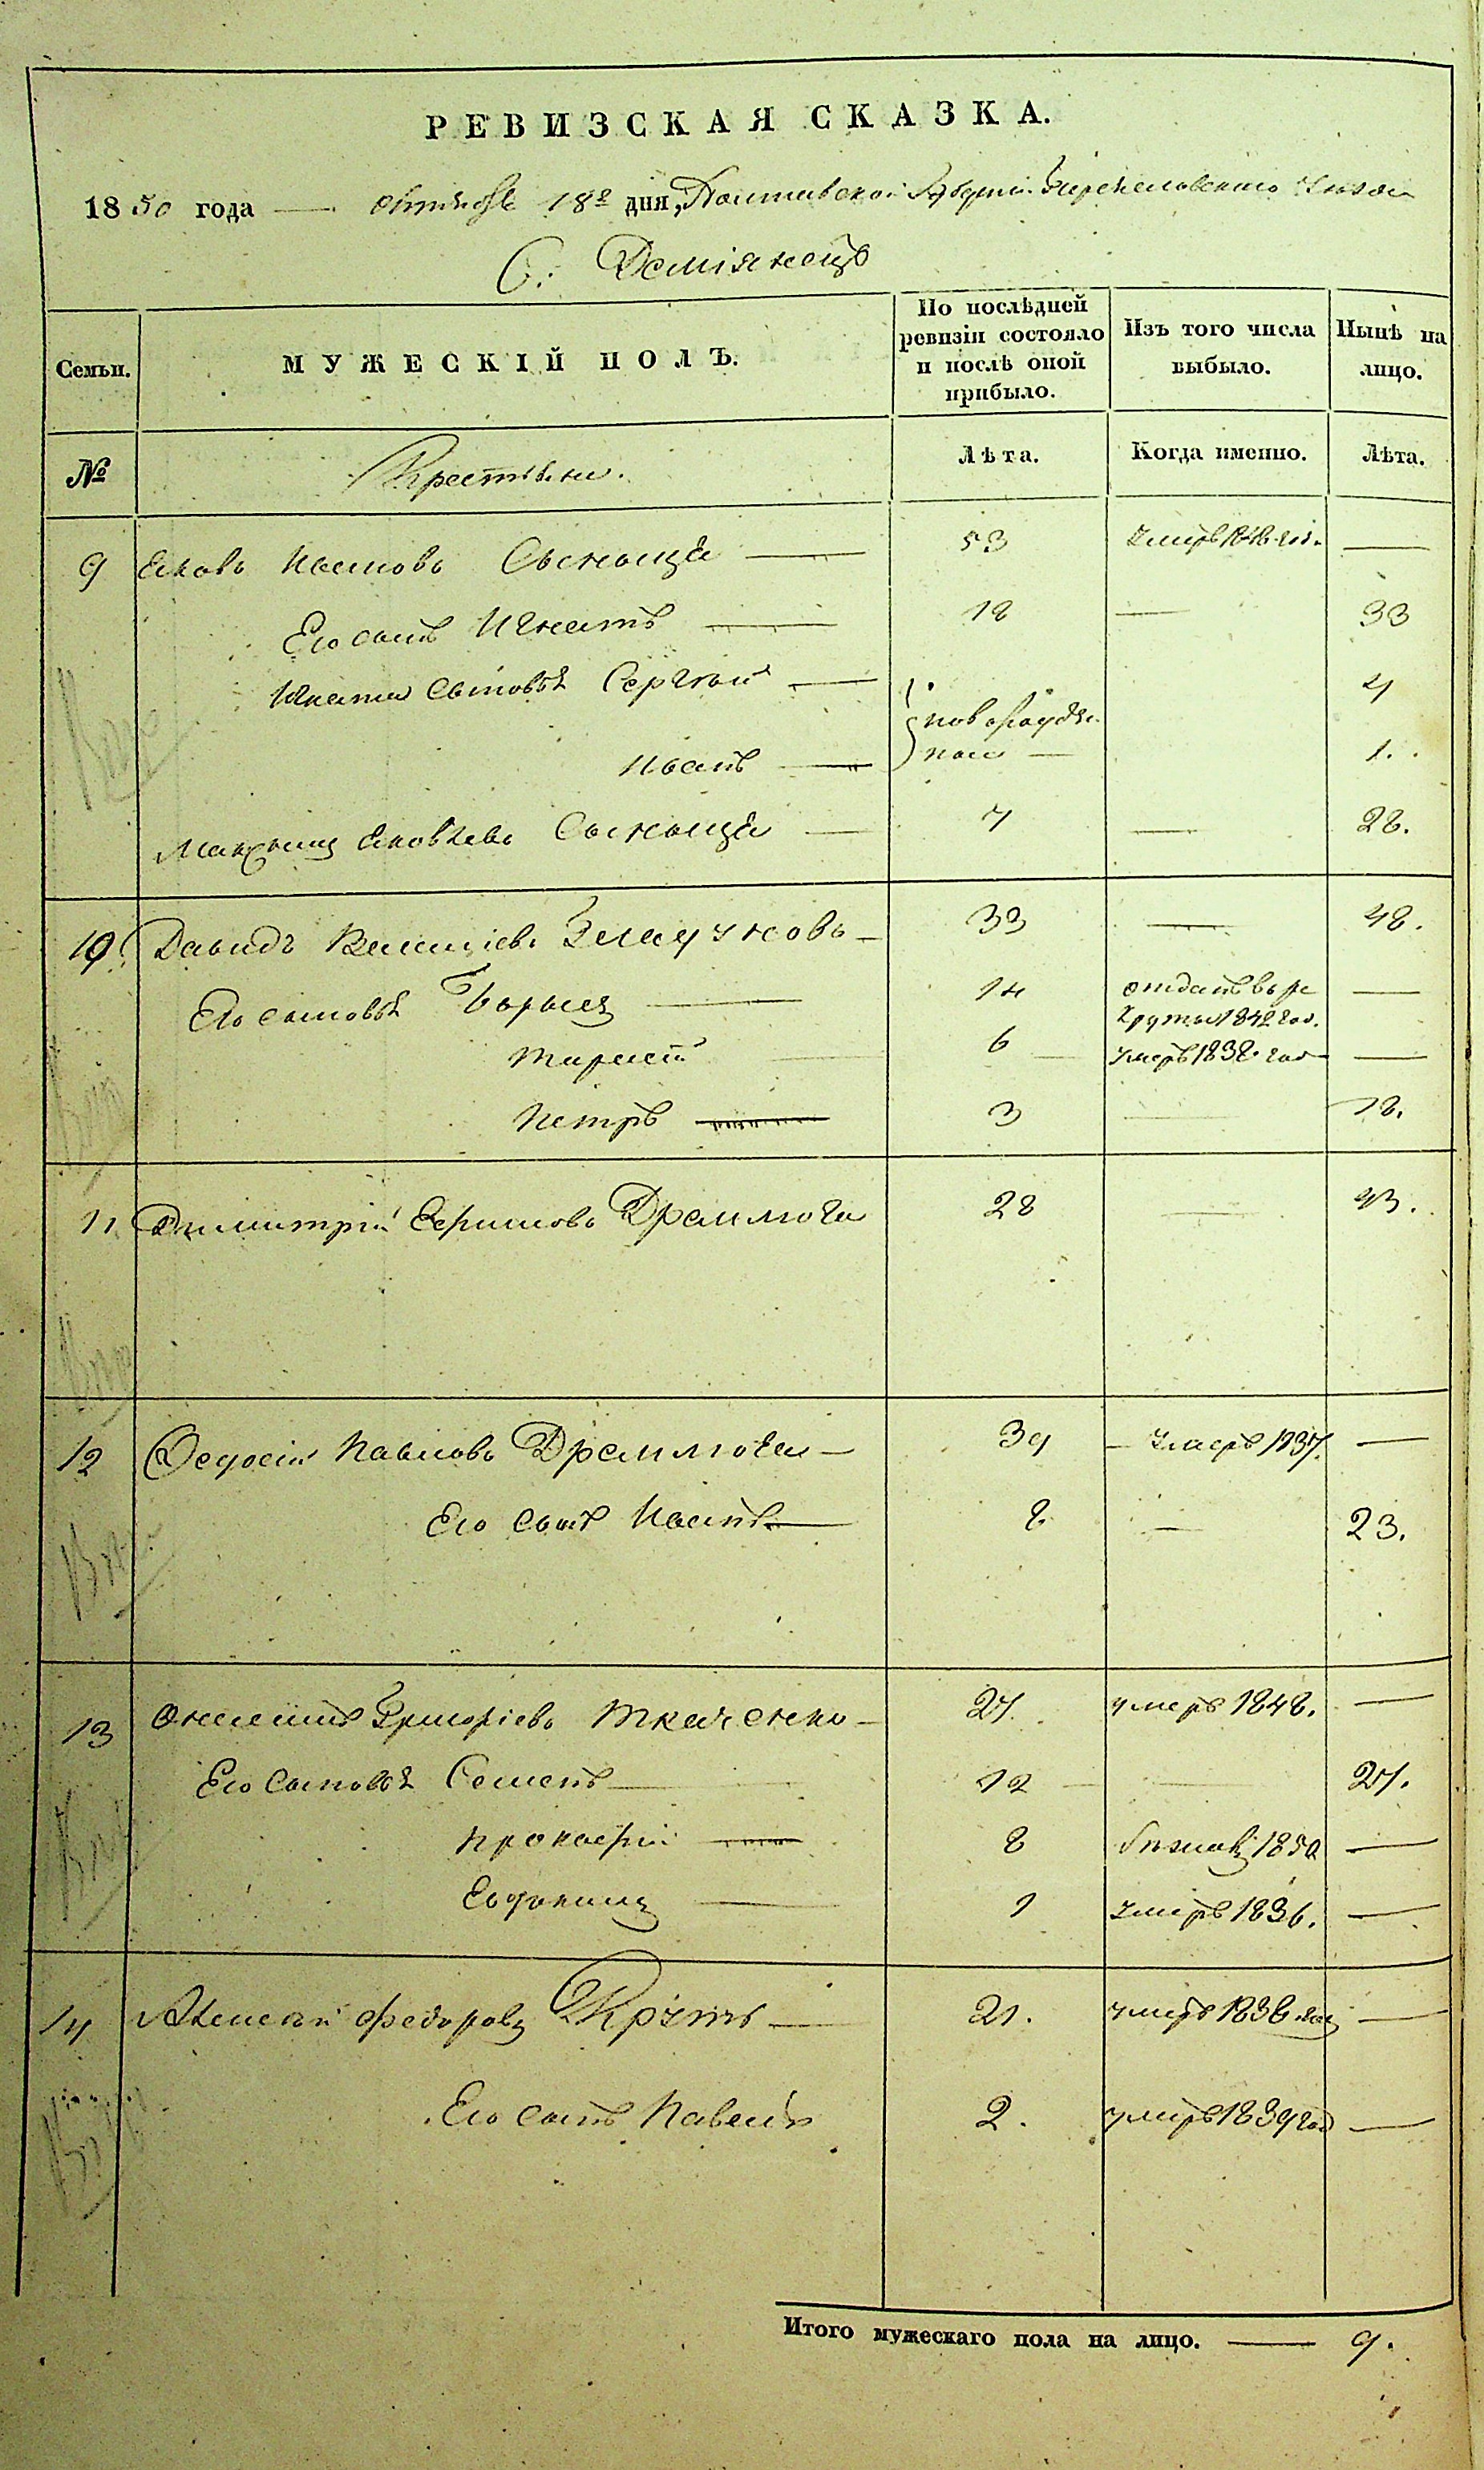 РЕВИЗСКАЯ СКАЗКА.
1850 года — октября 18го дня, Полтавской Губернiи Переяславского уезда
С: Демiянецъ
Семьи. МУЖЕСКIЙ ПОЛЪ. По послѣдней ревизiи состояло и послѣ оной прибыло. Изъ того числа выбыло. Нынѣ на лицо.
№ Крестьяне. Лѣта. Когда именно. Лѣта.
9 Яковъ Ивановъ 53 умеръ 184 год. —
Его сынъ Игнатъ — 18 — 33
Игната сыновья Сергѣй — новорожден 4
Иванъ — ные — 1.
Максимъ Яковлевъ — 7 — 28.
10 Давидъ 33 — 48.
Его сыновья Борисъ — 14 отданъ въ ре —
круты 1842 год.
Тарасъ 6 умеръ 1838 год —
Петръ — 3 — 18.
11 Димитрiй Ефимовъ Дремлюга 28 — 43.
12 Федосiй Павловъ Дремлюга — 39 — умеръ 1837. —
Его сынъ Иванъ — 8 — 23.
13 Григорiевъ Ткаченко — 27. умеръ 1848. —
Его сыновья Семенъ — 12 — 27.
Прокофiй — 8 1850 —
Евдокимъ — 1 умеръ 1836. —
14 Алексѣй Федоровъ — 21. умеръ 1836 год —
Его сынъ Павелъ 2. умеръ 1839 год —
Итого мужескаго пола на лицо. — 9.